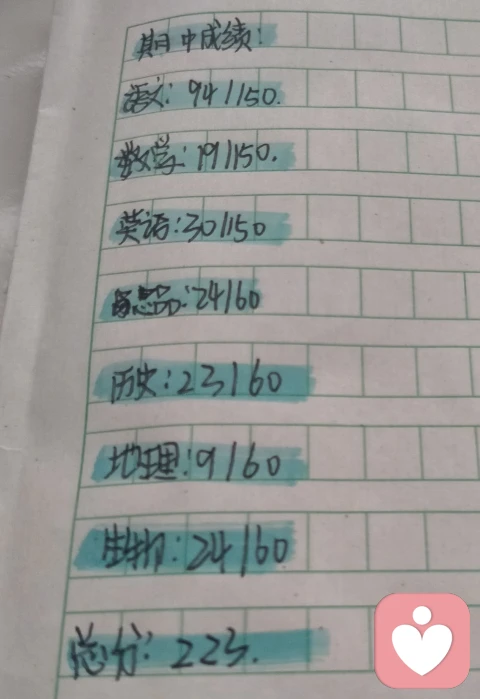 期中成绩:
语文: 94/150.
数学: 19/150.
英语:30/150
思品:24/60
历史:23/60
地理:9/60
生物:24/60
总分: 223.